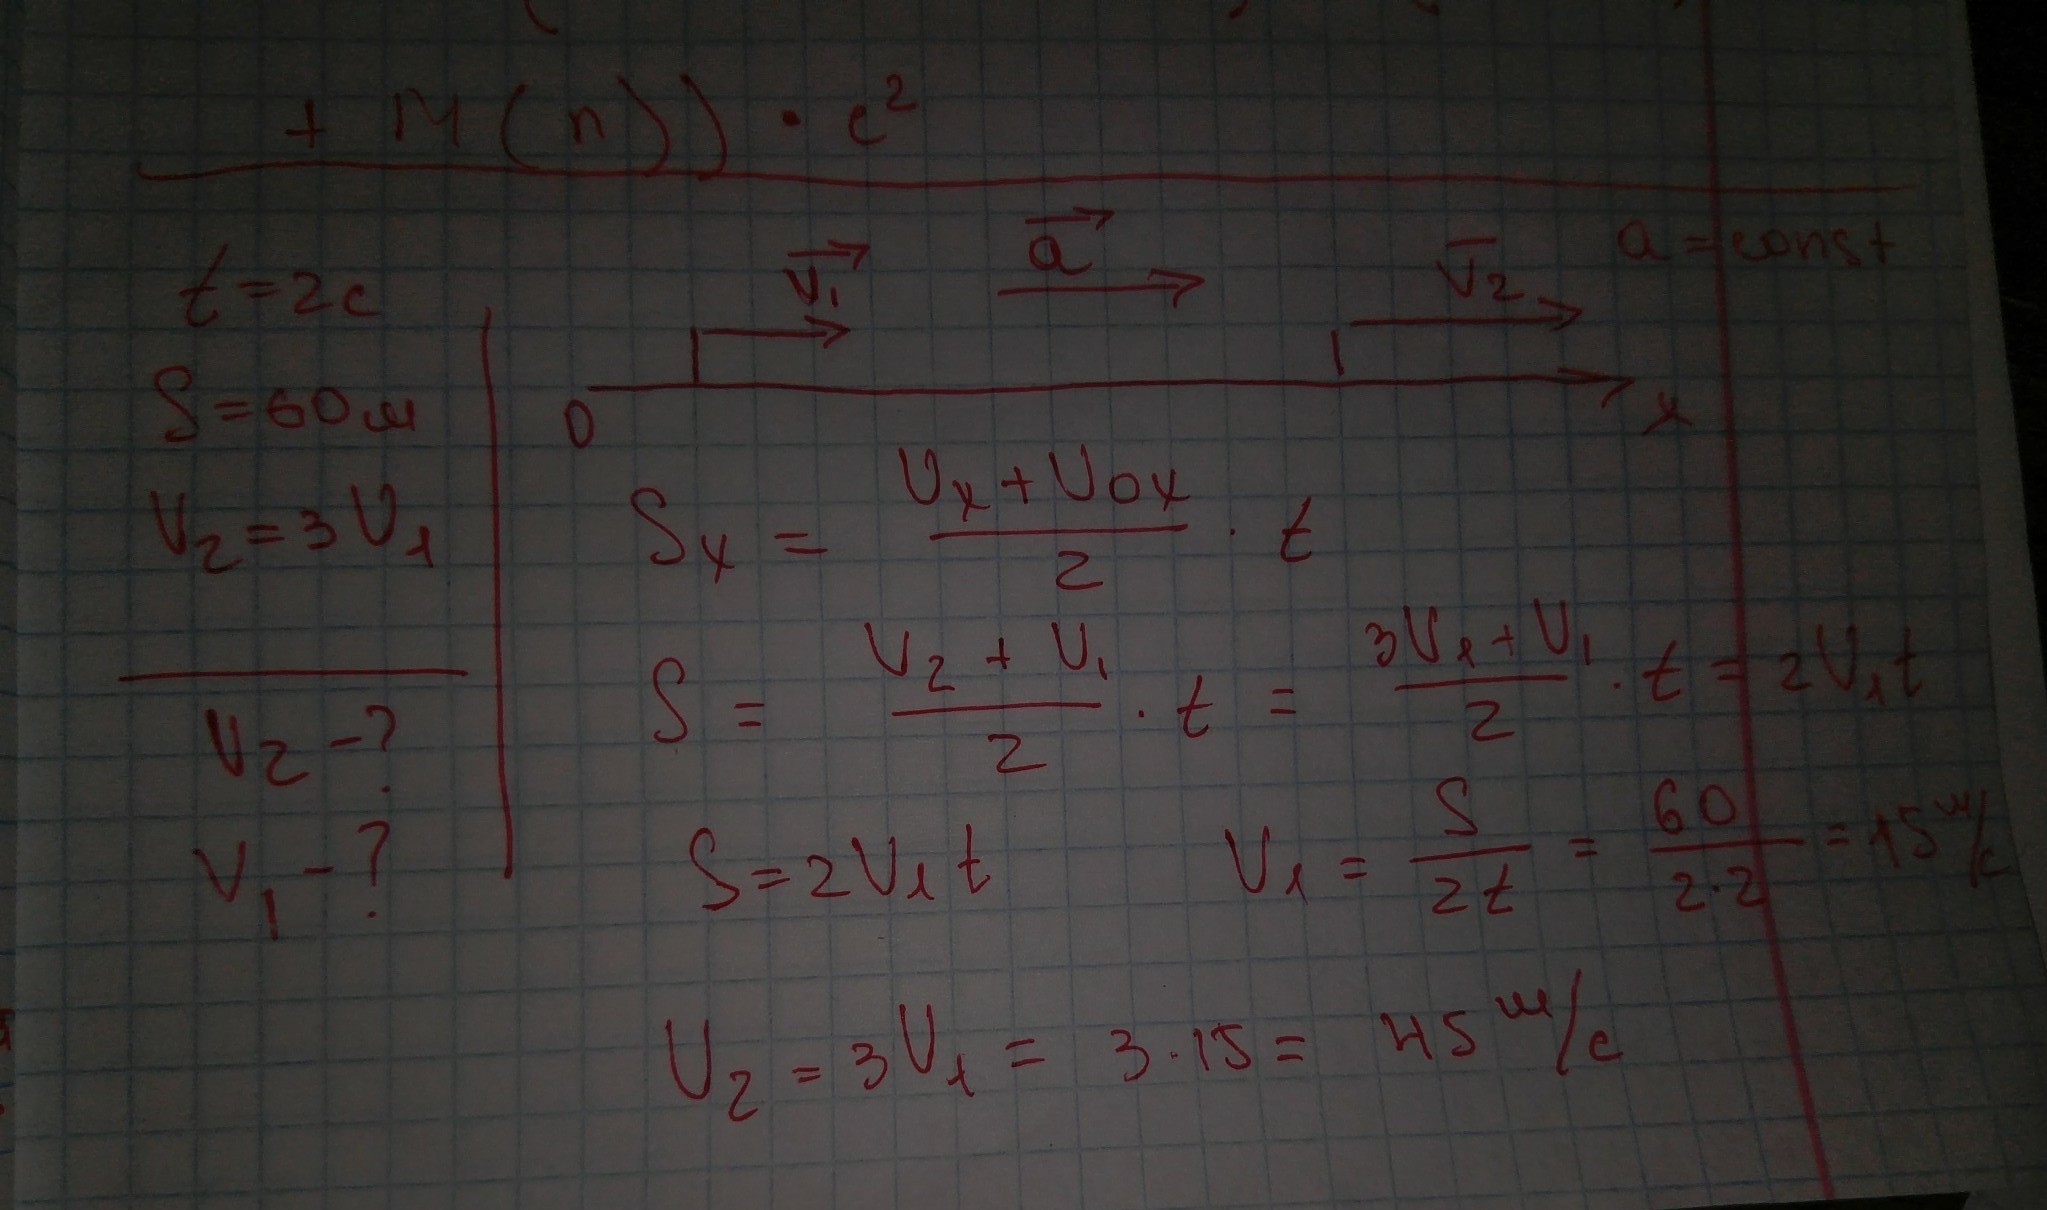 + M(n)) · c²
t = 2c
S = 60 м
V₂ = 3V₁
V₂ – ?
V₁ – ?
V₁ a V₂ a = const
0 x
Sₓ = (Vₓ + V₀ₓ)/2 · t
S = (V₂ + V₁)/2 · t = (3V₁ + V₁)/2 · t = 2V₁t
S = 2V₁t V₁ = S/2t = 60/2·2 = 15 м/с
V₂ = 3V₁ = 3·15 = 45 м/с